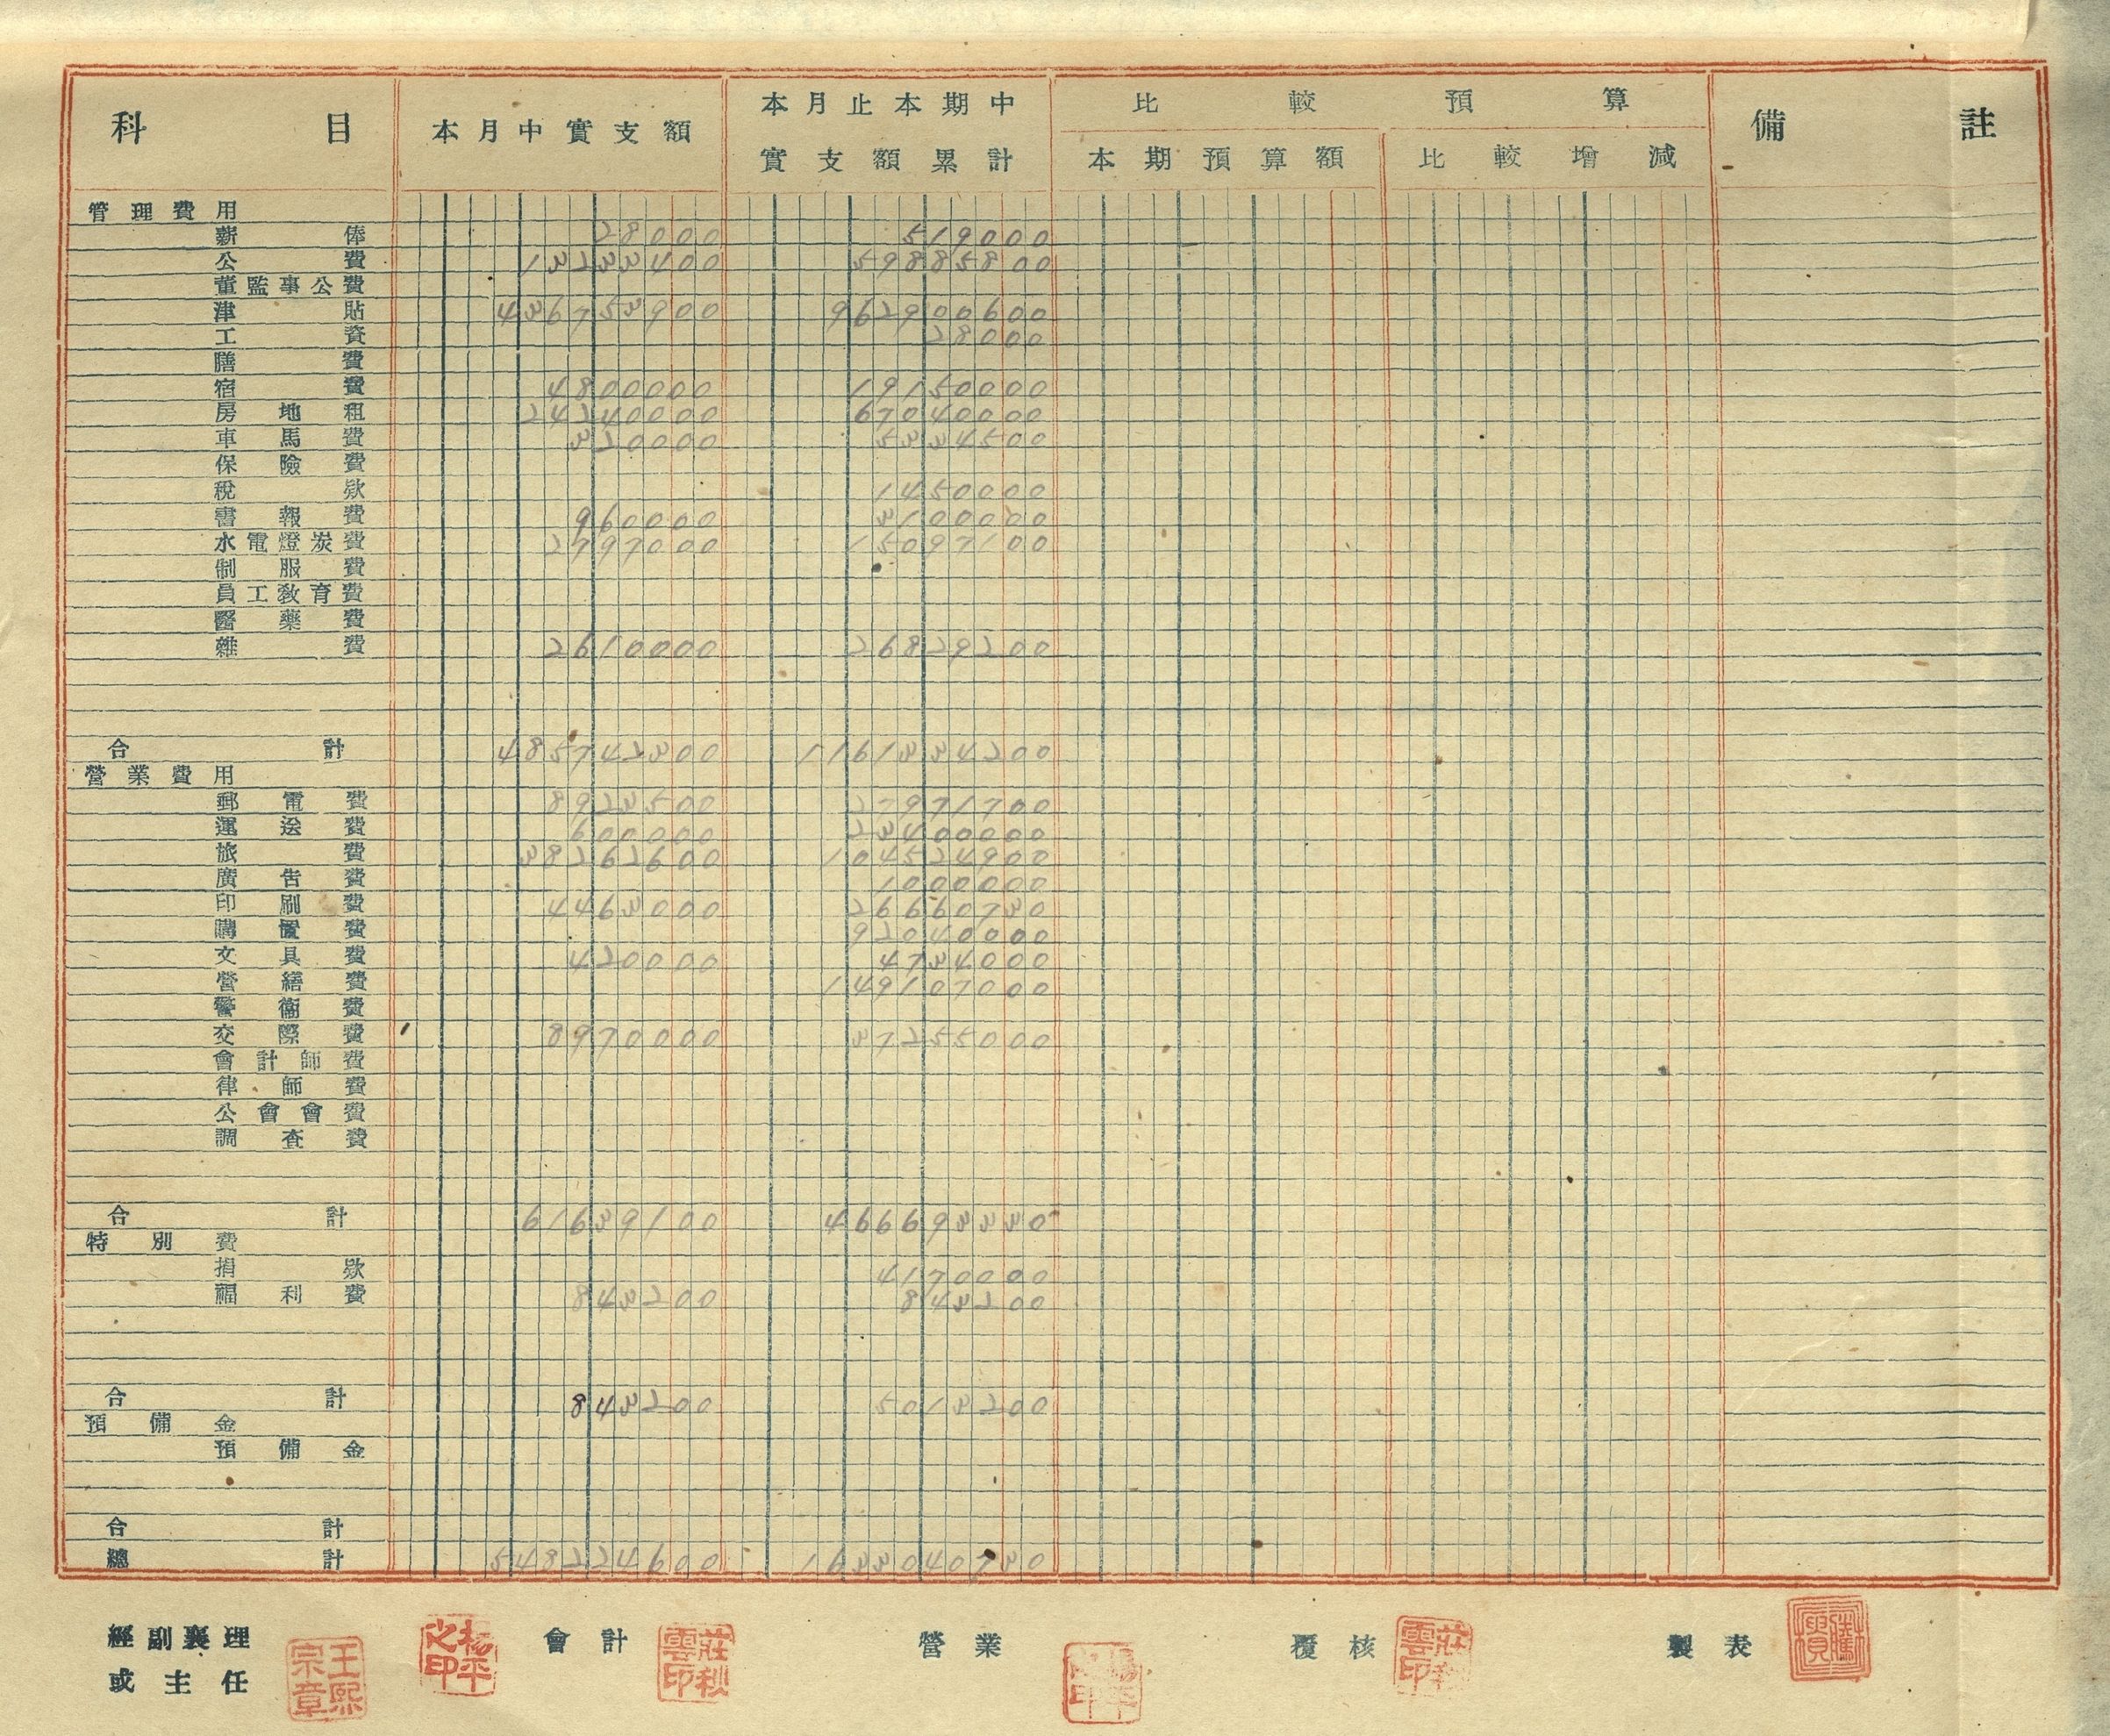 科目 本月中實支額 本月止本期中實支額累計 比較預算 備註
本期預算額 比較增減
管理費用
薪俸 28000 519000
公費 13233400 59885800
董監事公費
津貼 436753900 962900600
工資 28000
膳費
宿費 4800000 19150000
房地租 24240000 67040000
車馬費 320000 5334500
保險費
稅款 1450000
書報費 960000 3100000
水電燈炭費 2797000 15097100
制服費
員工教育費
醫藥費
雜費 2610000 26829200
合計 485742300 1161334200
營業費用
郵電費 8923500 27971700
運送費 600000 23400000
旅費 38262600 104524900
廣告費 1000000
印刷費 4463000 26660730
購置費 92040000
文具費 420000 4734000
營繕費 149107000
警衛費
交際費 8970000 37255000
會計師費
律師費
公會會費
調查費
合計 61639100 466693330
特別費
捐款 4170000
福利費 843200 843200
合計 843200 5013200
預備金
預備金
合計
總計 548224600 1633040730
經副襄理或主任 王熙宗章 楊平之印 會計 莊秋雲印 營業 覆核 莊秋雲印 製表